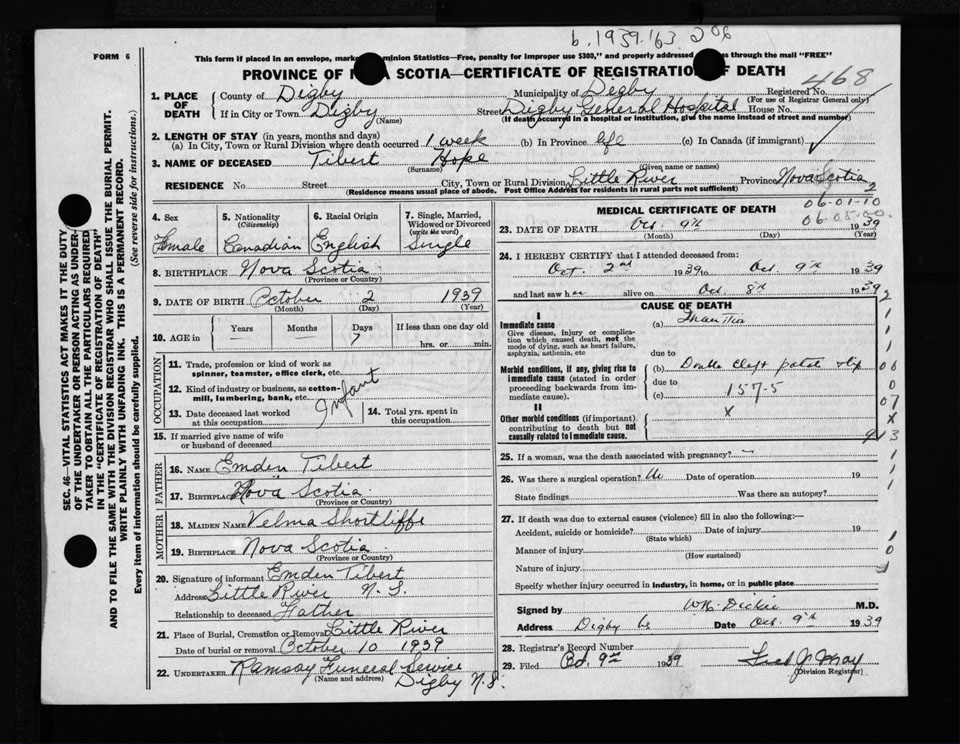 b. 1939.163 206
FORM 6
This form if placed in an envelope, marked Dominion Statistics—Free, penalty for improper use $300," and properly addressed passes through the mail "FREE"
PROVINCE OF NOVA SCOTIA—CERTIFICATE OF REGISTRATION OF DEATH
468
1. PLACE OF DEATH
County of Digby Municipality of Digby Registered No.
(For use of Registrar General only)
If in City or Town Digby Street Digby General Hospital House No.
(Name) (If death occurred in a hospital or institution, give the name instead of street and number)
2. LENGTH OF STAY (in years, months and days)
(a) In City, Town or Rural Division where death occurred 1 week (b) In Province life (c) In Canada (if immigrant)
3. NAME OF DECEASED Tibert Hope
(Surname) (Given name or names)
RESIDENCE No. Street City, Town or Rural Division Little River Province Nova Scotia
(Residence means usual place of abode. Post Office Address for residents in rural parts not sufficient)
2
06-01-10
06-05-00
4. Sex Female
5. Nationality (Citizenship) Canadian
6. Racial Origin English
7. Single, Married, Widowed or Divorced (write the word) Single
8. BIRTHPLACE Nova Scotia
(Province or Country)
9. DATE OF BIRTH October 2 1939
(Month) (Day) (Year)
10. AGE in Years — Months — Days 7 If less than one day old
hrs. or min.
OCCUPATION
11. Trade, profession or kind of work as spinner, teamster, office clerk, etc.
12. Kind of industry or business, as cotton-mill, lumbering, bank, etc.
Infant
13. Date deceased last worked at this occupation
14. Total yrs. spent in this occupation.
15. If married give name of wife or husband of deceased
FATHER
16. NAME Emden Tibert
17. BIRTHPLACE Nova Scotia
(Province or Country)
MOTHER
18. MAIDEN NAME Velma Shortliffe
19. BIRTHPLACE Nova Scotia
(Province or Country)
20. Signature of informant Emden Tibert
Address Little River N.S.
Relationship to deceased Father
21. Place of Burial, Cremation or Removal Little River
Date of burial or removal October 10 1939
22. UNDERTAKER Ramsay Funeral Service
(Name and address) Digby N.S.
MEDICAL CERTIFICATE OF DEATH
23. DATE OF DEATH Oct. 9th 1939
(Month) (Day) (Year)
24. I HEREBY CERTIFY that I attended deceased from:
Oct. 2nd 1939 to Oct 9th 1939
and last saw her alive on Oct. 8th 1939
CAUSE OF DEATH
I
Immediate cause
Give disease, injury or complication which caused death, not the mode of dying, such as heart failure, asphyxia, asthenia, etc
(a) Inanition
due to
Morbid conditions, if any, giving rise to immediate cause (stated in order proceeding backwards from immediate cause).
(b) Double cleft palate & lip
due to
(c) 157-5
II
Other morbid conditions (if important) contributing to death but not causally related to immediate cause.
x
25. If a woman, was the death associated with pregnancy? —
26. Was there a surgical operation? No Date of operation 19
State findings Was there an autopsy?
27. If death was due to external causes (violence) fill in also the following:—
Accident, suicide or homicide? Date of injury 19
(State which)
Manner of injury
(How sustained)
Nature of injury
Specify whether injury occurred in industry, in home, or in public place
Signed by W.R. Dickie M.D.
Address Digby Date Oct. 9th 1939
28. Registrar's Record Number
29. Filed Oct. 9th 1939
Division Registrar)
SEC. 46—VITAL STATISTICS ACT MAKES IT THE DUTY
OF THE UNDERTAKER OR PERSON ACTING AS UNDER-
TAKER TO OBTAIN ALL THE PARTICULARS REQUIRED
IN THE "CERTIFICATE OF REGISTRATION OF DEATH"
AND TO FILE THE SAME WITH THE DIVISION REGISTRAR WHO SHALL ISSUE THE BURIAL PERMIT.
WRITE PLAINLY WITH UNFADING INK. THIS IS A PERMANENT RECORD.
Every item of information should be carefully supplied. (See reverse side for instructions.)